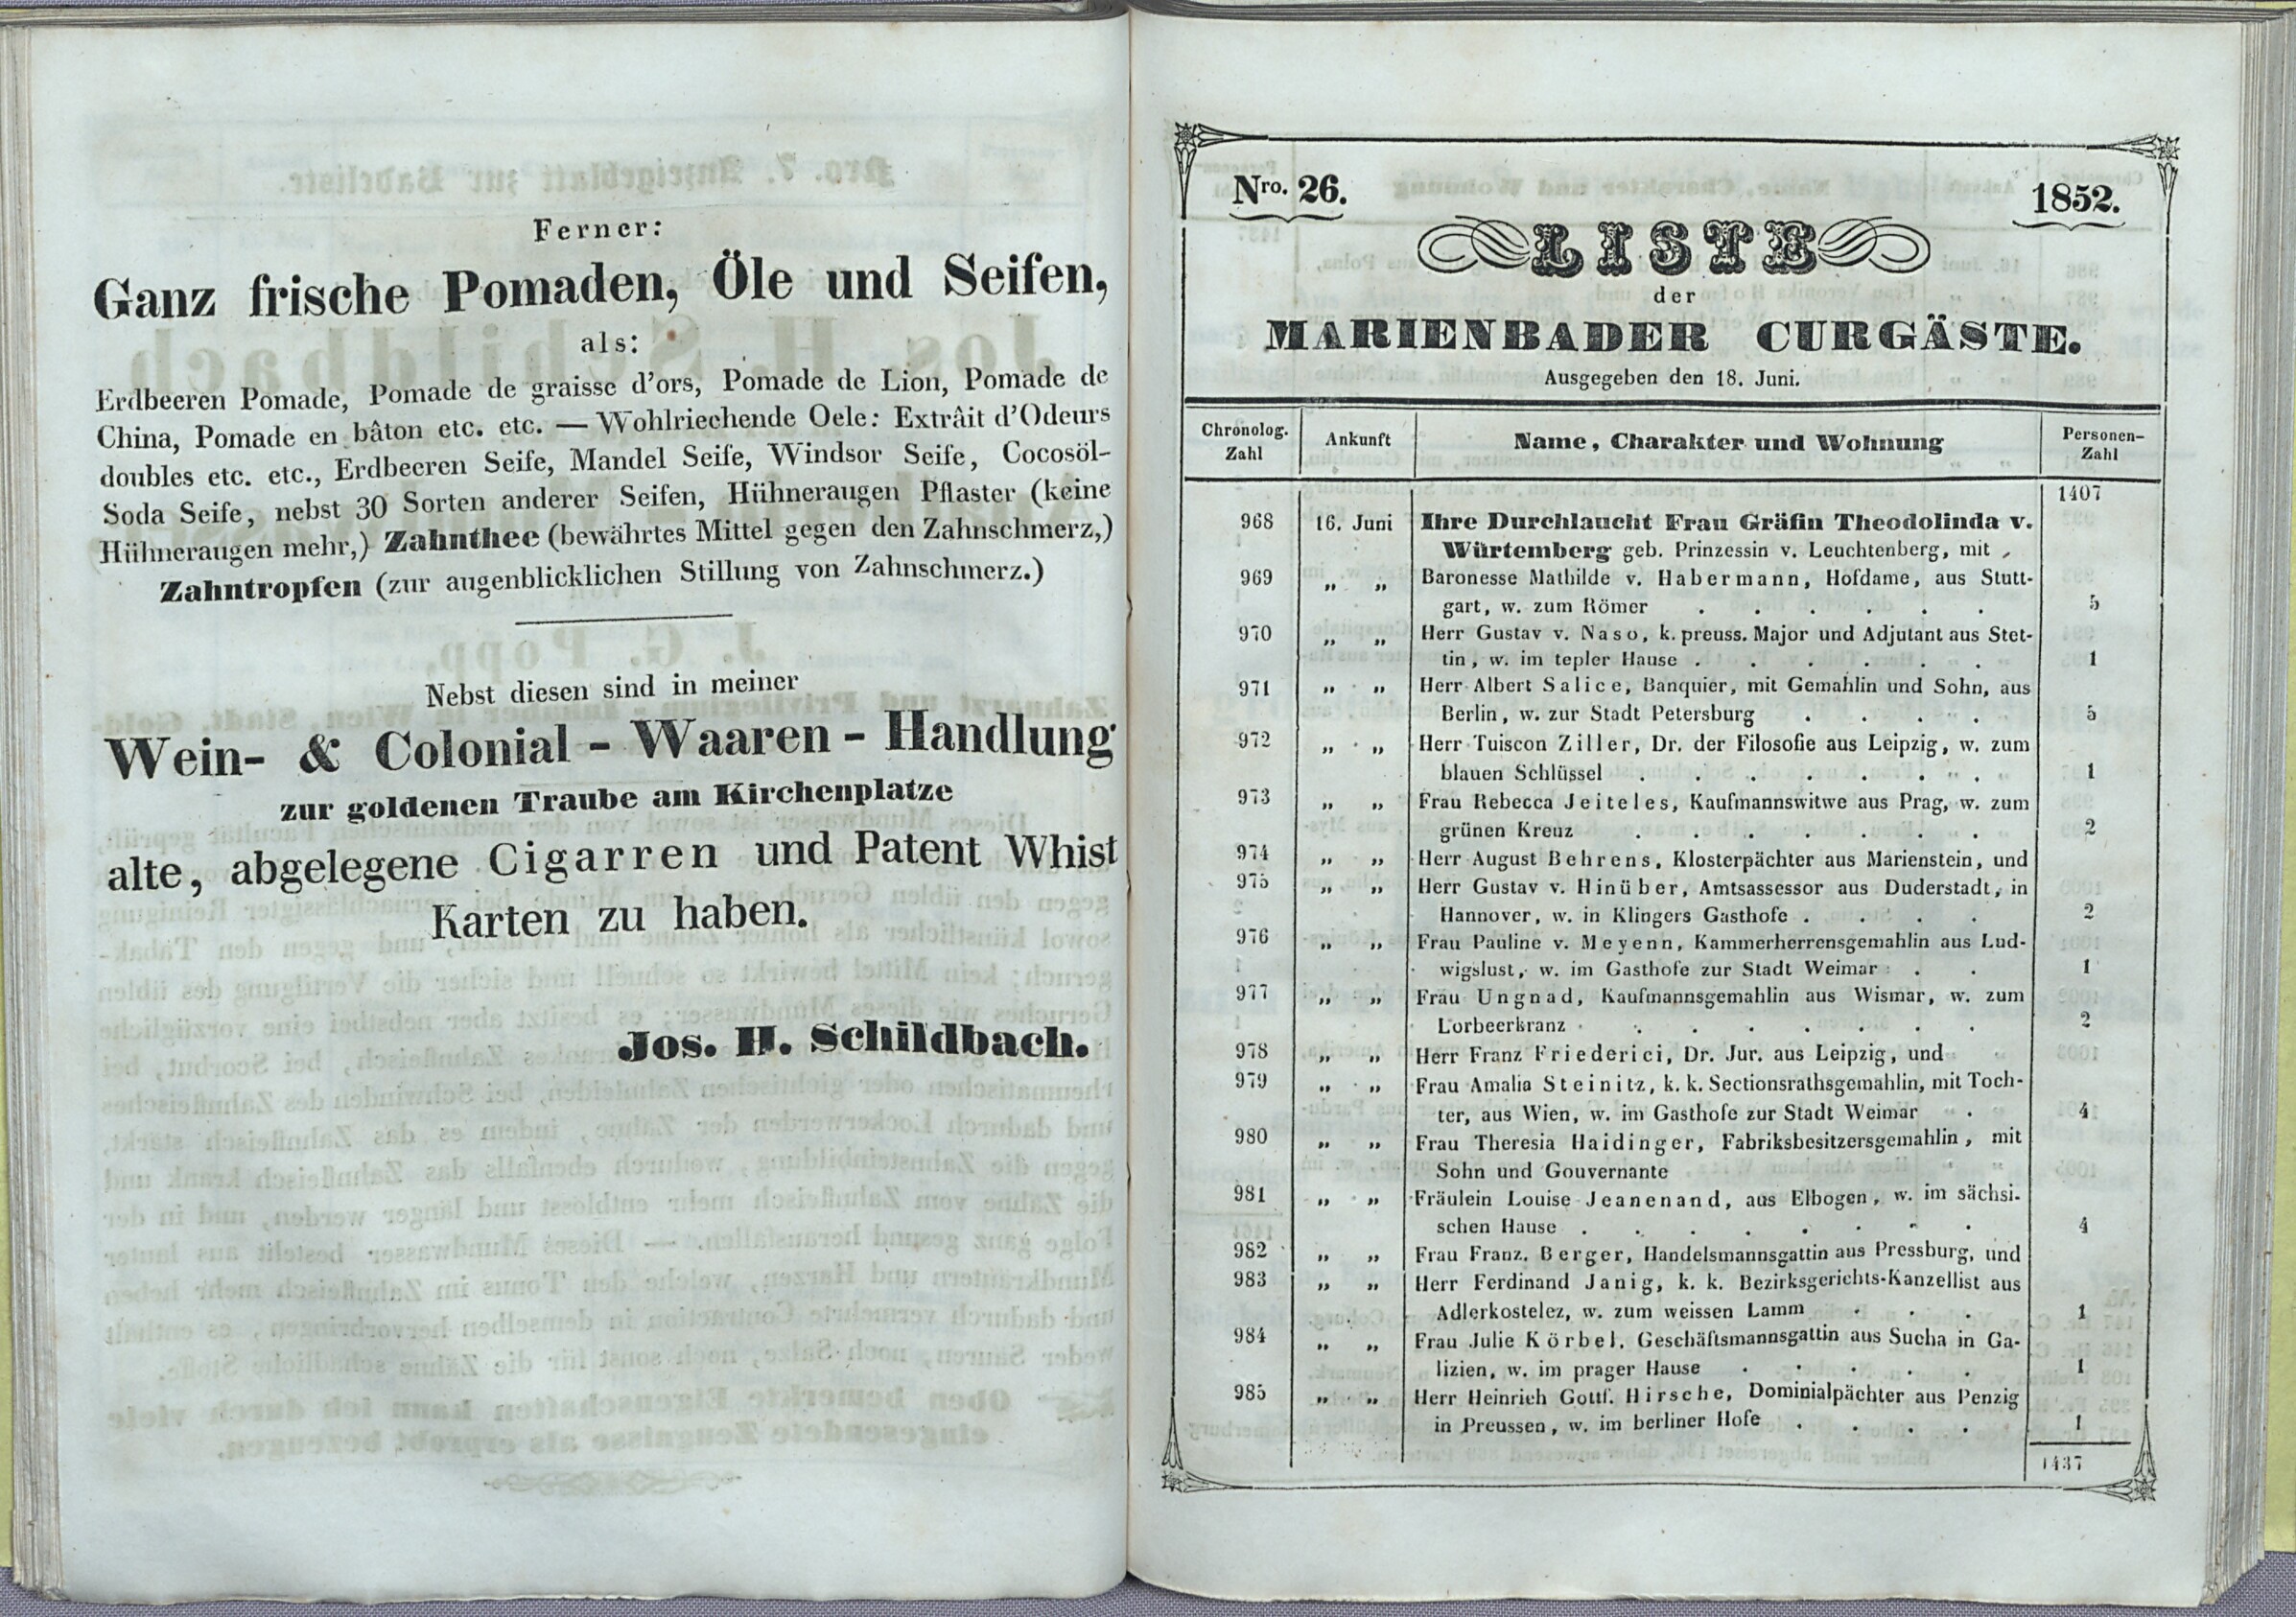 Ferner:
Ganz frische Pomaden, Öle und Seifen,
als:
Erdbeeren Pomade, Pomade de graisse d'ors, Pomade de Lion, Pomade de
China, Pomade en bâton etc. etc. — Wohlriechende Oele: Extrâit d'Odeurs
doubles etc. etc., Erdbeeren Seife, Mandel Seife, Windsor Seife, Cocosöl-
Soda Seife, nebst 30 Sorten anderer Seifen, Hühneraugen Pflaster (keine
Hühneraugen mehr,) Zahnthee (bewährtes Mittel gegen den Zahnschmerz,)
Zahntropfen (zur augenblicklichen Stillung von Zahnschmerz.)
Nebst diesen sind in meiner
Wein- & Colonial - Waaren - Handlung
zur goldenen Traube am Kirchenplatze
alte, abgelegene Cigarren und Patent Whist
Karten zu haben.
Jos. H. Schildbach.
Nro. 26. 1852.
LISTE
der
MARIENBADER CURGÄSTE.
Ausgegeben den 18. Juni.
Chronolog. Zahl Ankunft Name, Charakter und Wohnung Personen-Zahl
1407
968 16. Juni Ihre Durchlaucht Frau Gräfin Theodolinda v.
Würtemberg geb. Prinzessin v. Leuchtenberg, mit
969 „ „ Baronesse Mathilde v. Habermann, Hofdame, aus Stutt-
gart, w. zum Römer . . . . . . 5
970 „ „ Herr Gustav v. Naso, k. preuss. Major und Adjutant aus Stet-
tin, w. im tepler Hause . . . . . . 1
971 „ „ Herr Albert Salice, Banquier, mit Gemahlin und Sohn, aus
Berlin, w. zur Stadt Petersburg . . . . 5
972 „ „ Herr Tuiscon Ziller, Dr. der Filosofie aus Leipzig, w. zum
blauen Schlüssel . . . . . . . 1
973 „ „ Frau Rebecca Jeiteles, Kaufmannswitwe aus Prag, w. zum
grünen Kreuz . . . . . . . 2
974 „ „ Herr August Behrens, Klosterpächter aus Marienstein, und
975 „ „ Herr Gustav v. Hinüber, Amtsassessor aus Duderstadt, in
Hannover, w. in Klingers Gasthofe . . . . 2
976 „ „ Frau Pauline v. Meyenn, Kammerherrensgemahlin aus Lud-
wigslust, w. im Gasthofe zur Stadt Weimar . . 1
977 „ „ Frau Ungnad, Kaufmannsgemahlin aus Wismar, w. zum
Lorbeerkranz . . . . . . . 2
978 „ „ Herr Franz Friederici, Dr. Jur. aus Leipzig, und
979 „ „ Frau Amalia Steinitz, k. k. Sectionsrathsgemahlin, mit Toch-
ter, aus Wien, w. im Gasthofe zur Stadt Weimar . 4
980 „ „ Frau Theresia Haidinger, Fabriksbesitzersgemahlin, mit
Sohn und Gouvernante
981 „ „ Fräulein Louise Jeanenand, aus Elbogen, w. im sächsi-
schen Hause . . . . . . . . 4
982 „ „ Frau Franz. Berger, Handelsmannsgattin aus Pressburg, und
983 „ „ Herr Ferdinand Janig, k. k. Bezirksgerichts-Kanzellist aus
Adlerkostelez, w. zum weissen Lamm . . . 1
984 „ „ Frau Julie Körbel, Geschäftsmannsgattin aus Sucha in Ga-
lizien, w. im prager Hause . . . . . 1
985 „ „ Herr Heinrich Gottf. Hirsche, Dominialpächter aus Penzig
in Preussen, w. im berliner Hofe . . . . 1
1437